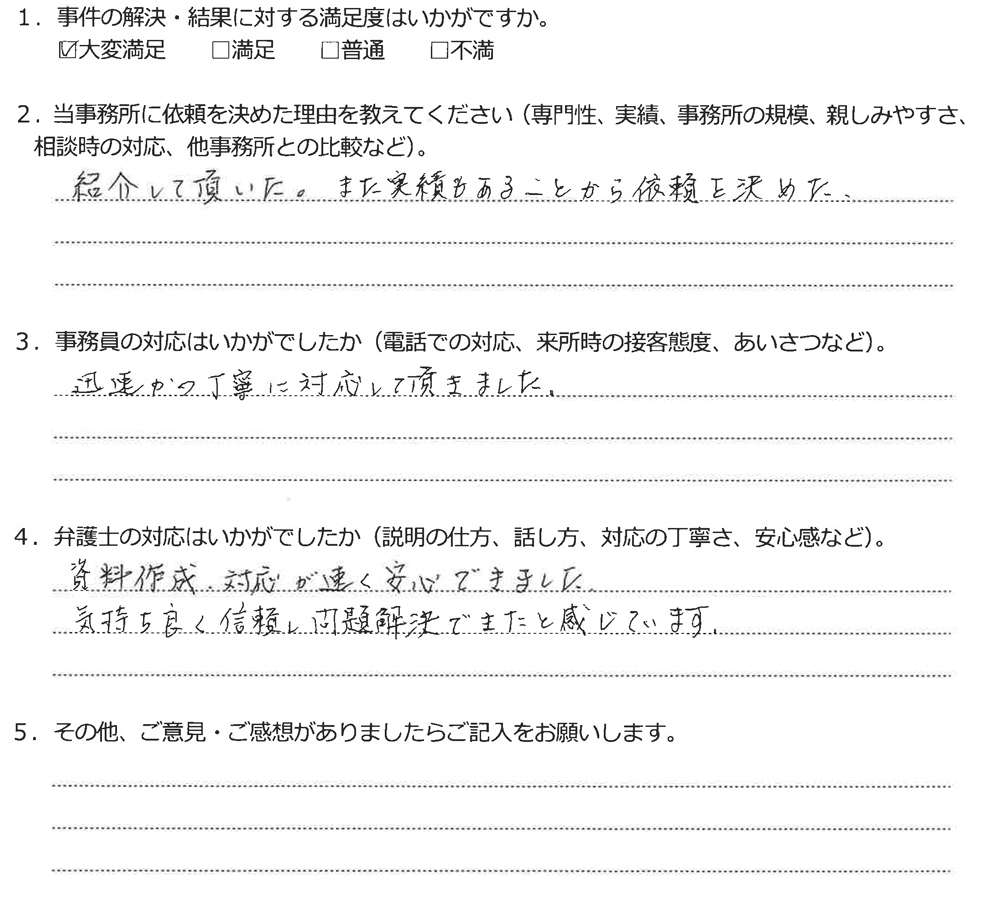 1．事件の解決・結果に対する満足度はいかがですか。
☑大変満足　□満足　□普通　□不満
2．当事務所に依頼を決めた理由を教えてください（専門性、実績、事務所の規模、親しみやすさ、
相談時の対応、他事務所との比較など）。
紹介して頂いた。また実績もあることから依頼を決めた、
3．事務員の対応はいかがでしたか（電話での対応、来所時の接客態度、あいさつなど）。
迅速かつ丁寧に対応して頂きました、
4．弁護士の対応はいかがでしたか（説明の仕方、話し方、対応の丁寧さ、安心感など）。
資料作成、対応が速く安心できました、
気持ち良く信頼し問題解決できたと感じています、
5．その他、ご意見・ご感想がありましたらご記入をお願いします。